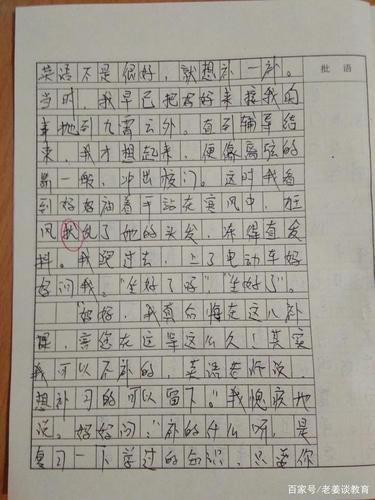 批 语
英语不是很好，就想补一补。
当时，我早已把奶奶来接我的
事抛到九霄云外。直到辅导结
束，我才想起来，便像离弦的
箭一般，冲出校门。这时我看
到奶奶插着手站在寒风中，狂
风我乱了她的头发，冻得直发
抖。我跑过去，上了电动车奶
奶问我。"生好了呀"，"坐好了"。
"奶奶，我真后悔在这儿补
课，害您在这等这么久！其实
我可以不补的，英语老师说，
想补习的可以留下。"我愧疚地
说。奶奶问："补的什么呀，是
复习一下学过的知识，只要你
百家号/老姜谈教育